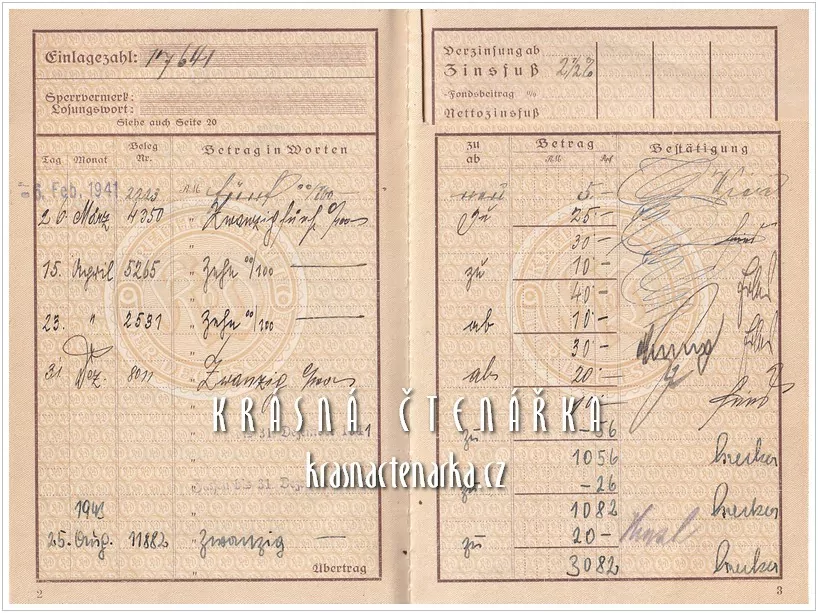 Einlagezahl: 17641
Sperrvermerk:
Losungswort:
Siehe auch Seite 20
Tag Monat Beleg Nr. Betrag in Worten
6. Feb. 1941 2223 RM fünf 00/100
20. März 4350 " Zwanzigfünf 00/100
"
15. April 5265 " Zehn 00/100
"
23. " 2531 " Zehn 00/100
"
31. Dez. 8011 " Zwanzig
"
31. Dezember 1941
"
bis 31. Dez
"
25. Aug. 11882 " Zwanzig
" Übertrag
2
Verzinsung ab
Zinsfuß 2½%
-Fondsbeitrag %
Nettozinsfuß
zu ab Betrag Bestätigung
RM Rpf
5-
zu 25-
30-
zu 10-
40-
ab 10-
30-
ab 20-
10-
zu -56
1056
zu -26
1082
zu 20-
3082
3
KRÁSNÁ ČTENÁŘKA
krasnactenarka.cz